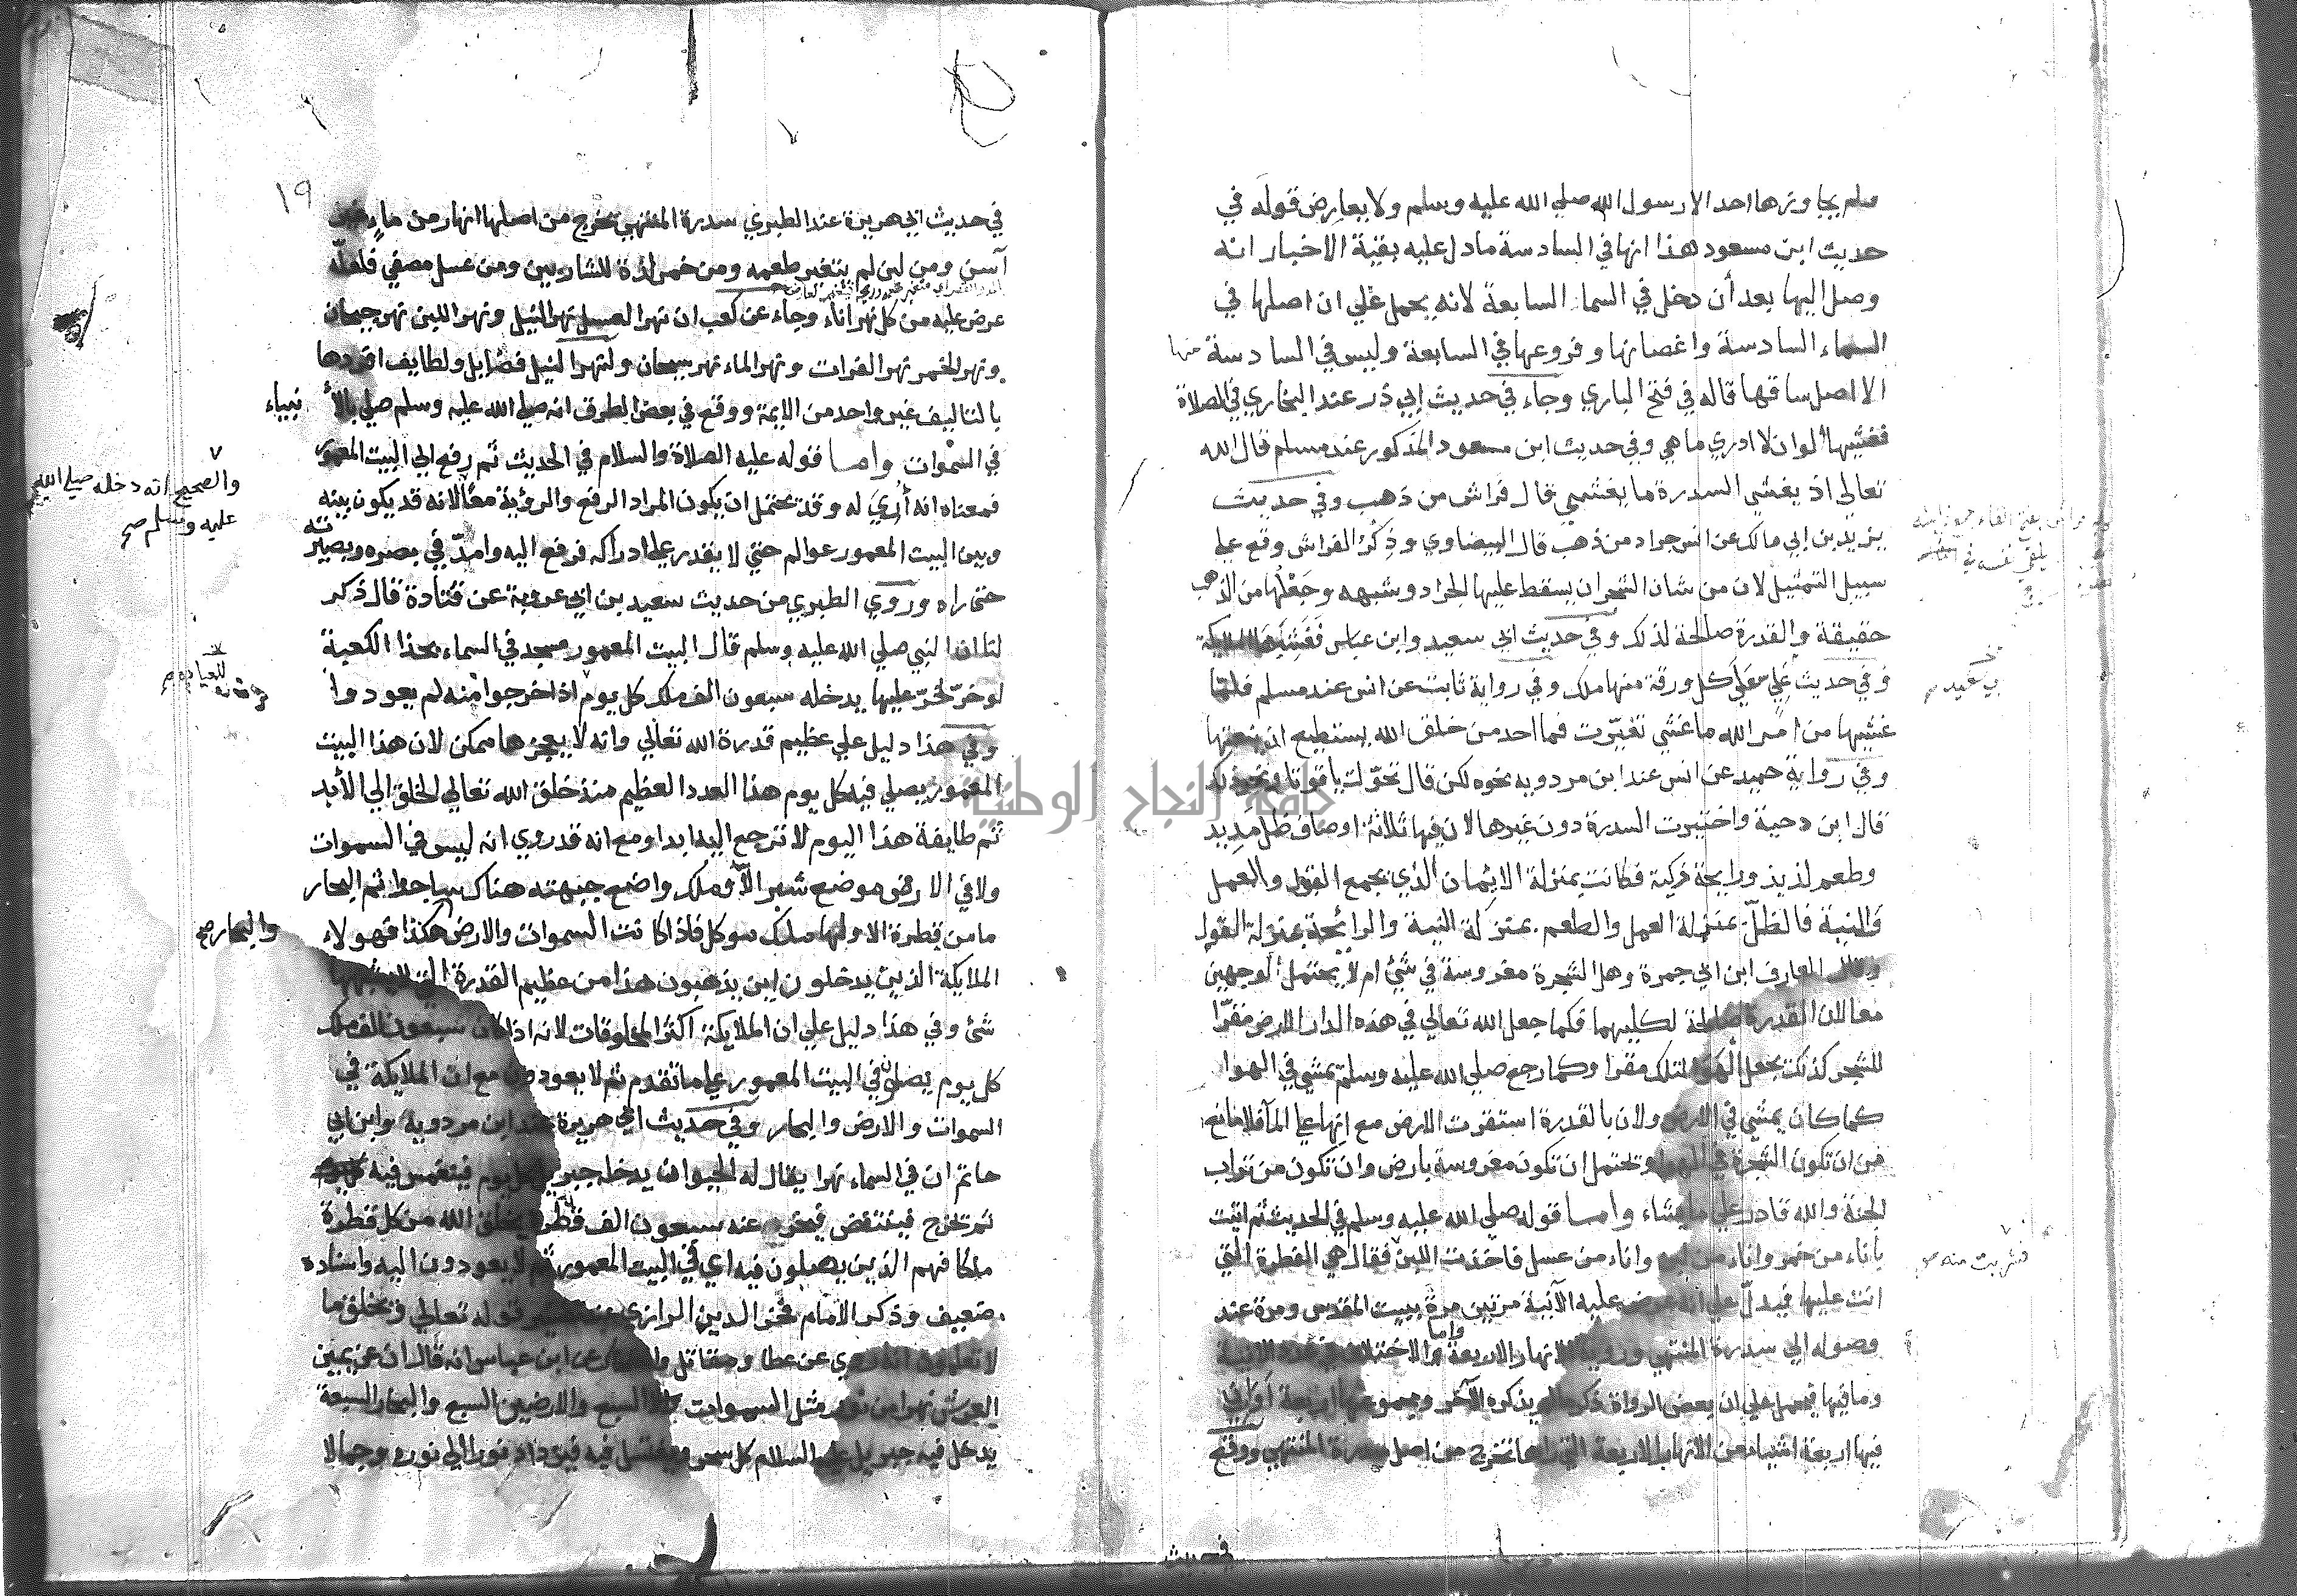 فلم يجاوزها احد الا رسول الله صلي الله عليه وسلم ولا يعارض قوله في
حديث ابن مسعود هذا انها في السادسة ما دل عليه بقية الاخبار انه
وصل اليها بعد أن دخل في السما السابعة لانه يحمل علي ان اصلها في
السماء السادسة واغصانها وفروعها في السابعة وليس في السادسة منها
الا اصل ساقها قاله في فتح الباري وجاء في حديث ابي ذر عند البخاري في الصلاة
فغشيها ألوان لا ادري ما هي وفي حديث ابن مسعود المذكور عند مسلم قال الله
تعالي اذ يغشي السدرة ما يغشي قال فراش من ذهب وفي حديث
يزيد بن ابي مالك عن انس جراد من ذهب قال البيضاوي وذِكْرُ الفراش وقع علي
سبيل التمثيل لان من شان الشجر ان يسقط عليها الجراد وشبهه وجَعْلُها من الذهب
حقيقة والقدرة صالحة لذلك وفي حديث ابي سعيد وابن عباس فغشيها الملايكة
وفي حديث علي علي كل ورقة منها ملك وفي رواية ثابت عن انس عند مسلم فلمّا
غشيها من امر الله ما غشي تغيّرت فما احد من خلق الله يستطيع ان ينعتها
وفي رواية حميد عن انس عند ابن مردويه نحوه لكن قال تحوّلت ياقوتا ونحو ذلك
قال ابن دحية واختيرت السدرة دون غيرها لان فيها ثلاثة اوصاف ظل مديد
وطعم لذيذ ورايحة زكية فكانت بمنزلة الايمان الذي يجمع القول والعمل
والنية فالظلّ بمنزلة العمل والطعم بمنزلة النية والرائحة بمنزلة القول
وقال العارف ابن ابي جمرة وهل الشجرة مغروسة في شئ ام لا يحتمل الوجهين
معا لان القدرة صالحة لكليهما فكما جعل الله تعالي في هذه الدار الارض مقرّا
للشجر كذلك يجعل الهوا لتلك مقرا وكما رجع صلي الله عليه وسلم يمشي في الهوا
كما كان يمشي في الارض ولان بالقدرة استقرت الارض مع انها علي المآ فلا مانع
من ان تكون الشجرة في الهوا وتحتمل ان تكون مغروسة بارض وان تكون من تراب
الجنة والله قادر علي ما يشاء واما قوله صلي الله عليه وسلم في الحديث ثم اتيت
باناء من خمر واناء من لبن واناء من عسل فاخذت اللبن فقال هي الفطرة التي
انت عليها فيدلّ علي انه عرض عليه الآنية مرتين مرة ببيت المقدس ومرة عند
وصوله الي سدرة المنتهي ورؤية الانهار الاربعة واما الاختلاف في عدد الانية
وما فيها فيحمل علي ان بعض الرواة ذكر ما لم يذكره الآخر ومجموعها اربعة أواني
فيها اربعة اشياء من الانهار الاربعة التي راها تخرج من اصل سدرة المنتهي ووقع
فشربت منه
في حديث
١٩
في حديث ابي هريرة عند الطبري سدرة المنتهي تخرج من اصلها انهار من ماء غير
آسن ومن لبن لم يتغير طعمه ومن خمر لذة للشاربين ومن عسل مصفي فلعلّه
عرض عليه من كل نهر اناء وجاء عن كعب ان نهر العسل نهر النيل ونهر اللبن نهر جيحان
ونهر الخمر نهر الفرات ونهر الماء نهر سيحان ولنهر النيل فضايل ولطايف افردها
بالتاليف غير واحد من الايمة ووقع في بعض الطرق انه صلي الله عليه وسلم صلي بالأنبياء
في السموات واما قوله عليه الصلاة والسلام في الحديث ثم رفع الي البيت المعمور
فمعناه انه أُرِيَ له وقد تحتمل ان يكون المراد الرفع والرؤية معًا لانه قد يكون بينه
وبين البيت المعمور عوالم حتي لا يقدر علي ادراكه فرفع اليه وامدّ في بصره وبصيرته
حتي راه وروي الطبري من حديث سعيد بن ابي عروبة عن قتادة قال ذكر
لنا ان النبي صلي الله عليه وسلم قال البيت المعمور مسجد في السماء بحذا الكعبة
لو خرّ لخرّ عليها يدخله سبعون الف ملك كل يوم اذا خرجوا منه لم يعودوا
وفي هذا دليل علي عظيم قدرة الله تعالي وانه لا يعجزها ممكن لان هذا البيت
المعمور يصلي فيه كل يوم هذا العدد العظيم منذ خلق الله تعالي الخلق الي الأبد
ثم طايفة هذا اليوم لا ترجع اليه ابدا ومع انه قد روي انه ليس في السموات
ولا في الارض موضع شبر الّا وملك واضع جبهته هناك ساجدا ثم البحار
ما من قطرة الا ولها ملك موكل فاذا كانت السموات والارض هكذا فهولاء
الملايكة الذين يدخلون اين يذهبون هذا من عظيم القدرة التي لا يشبهها
شئ وفي هذا دليل علي ان الملايكة اكثر المخلوقات لانه اذا كان سبعون الف ملك
كل يوم يصلون في البيت المعمور علي ما تقدم ثم لا يعودون مع ان الملايكة في
السموات والارض والبحار وفي حديث ابي هريرة عند ابن مردويه وابن ابي
حاتم ان في السماء نهرا يقال له الحيوان يدخله جبريل كل يوم فينغمس فيه
ثم تخرج فينتفض فيخرج عنه سبعون الف قطرة يخلق الله من كل قطرة
ملكا فهم الذين يصلون فيه اي في البيت المعمور ثم لا يعودون اليه واسناده
ضعيف وذكر الامام فخر الدين الرازي عند تفسير قوله تعالي ويخلق ما
لا تعلمون انه روي عن عطا ومقاتل والضحاك عن ابن عباس انه قال ان عن يمين
العرش نهرا من نور مثل السموات السبع والارضين السبع والبحار السبعة
يدخل فيه جبريل عليه السلام كل سحر ويغتسل فيه فيزداد نورا الي نوره وجمالا
والصحيح انه دخله صلي الله
عليه وسلم صح
والبحار صح
جامعة النجاح الوطنية